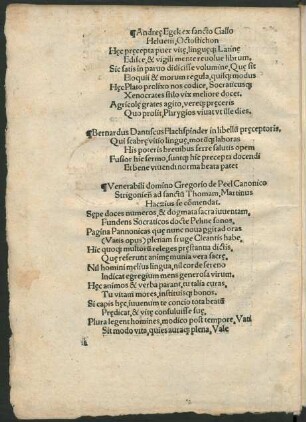 ¶Andreę Egek ex sancto Gallo
Heluetii, Octostichon
Hęc pręcepta puer vitę, linguęq; Latinę
Edisce, & vigili mente reuolue librum,
Sic satis in paruo didicisse volumine, Que sit
Eloquii & morum regula, quisq; modus
Hęc Plato prolixo nos codice, Socraticusq;
Xenocrates stilo vix meliore docet,
Agricolę grates agito, vereq; pręceris
Quo prolit, Phrygios viuat vt ille dies.
¶Bernardus Dantiscus Flachspinder in libellū pręceptoris,
Qui scabrę vitio linguę, motūq; laboras
His poteris breuibus ferre salutis opem
Fusior hic sermo, suntq; hic precepta docendi
Et bene viuendi norma beata patet
¶Venerabili domino Gregorio de Peel Canonico
Strigonieñ ad sanctū Thomam, Martinus
Haceius se cōmendat.
Sępe doces numeros, & dogmata sacra iuuentam,
Fundens Socraticos docte Peline sonos,
Pagina Pannonicas quę nunc noua pgitad oras
(Vatis opus) plenam fruge Cleantis habe,
Hic quoq; multorū releges prestantia dictis,
Quę referunt animę munia vera sacrę.
Nil homini melius lingua, nil corde sereno
Indicat egregium mens generosa virum,
Hęc animos & verba parant, tu talia curas,
Tu vitam mores, instituisq; bonos.
Si capis hęc, iuuenum te concio tota beatū
Prędicat, & vitę confuluisse suę,
Plura legent homines, modico post tempore, Vati
Sit modo vita, quies, autaq; plena, Vale